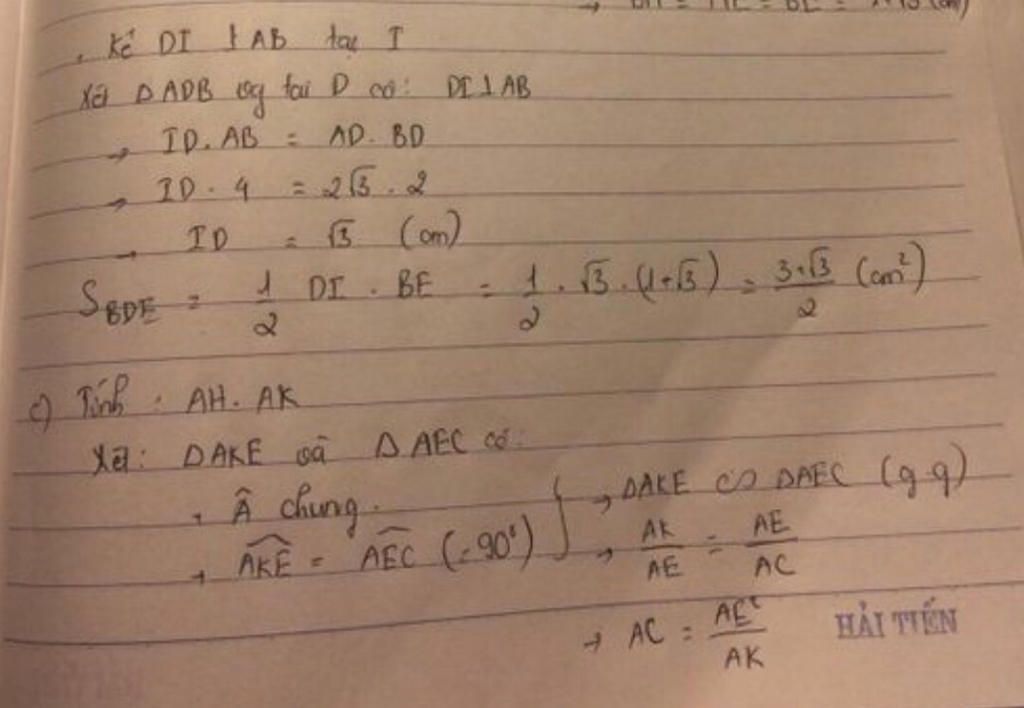 . Kẻ DI ⊥ AB tại I
Xét ΔADB vg tại D có: DI⊥AB
→ ID.AB = AD.BD
→ ID.4 = 2√3.2
→ ID = √3 (cm)
S_BDE = 1/2 DI.BE = 1/2.√3.(1+√3) = (3+√3)/2 (cm²)
c) Tính: AH.AK
Xét: ΔAKE và ΔAEC có:
+ Â chung.
+ AKE = AEC (=90°) } → ΔAKE ∽ ΔAEC (g.g)
→ AK/AE = AE/AC
→ AC = AE²/AK
HẢI TIẾN